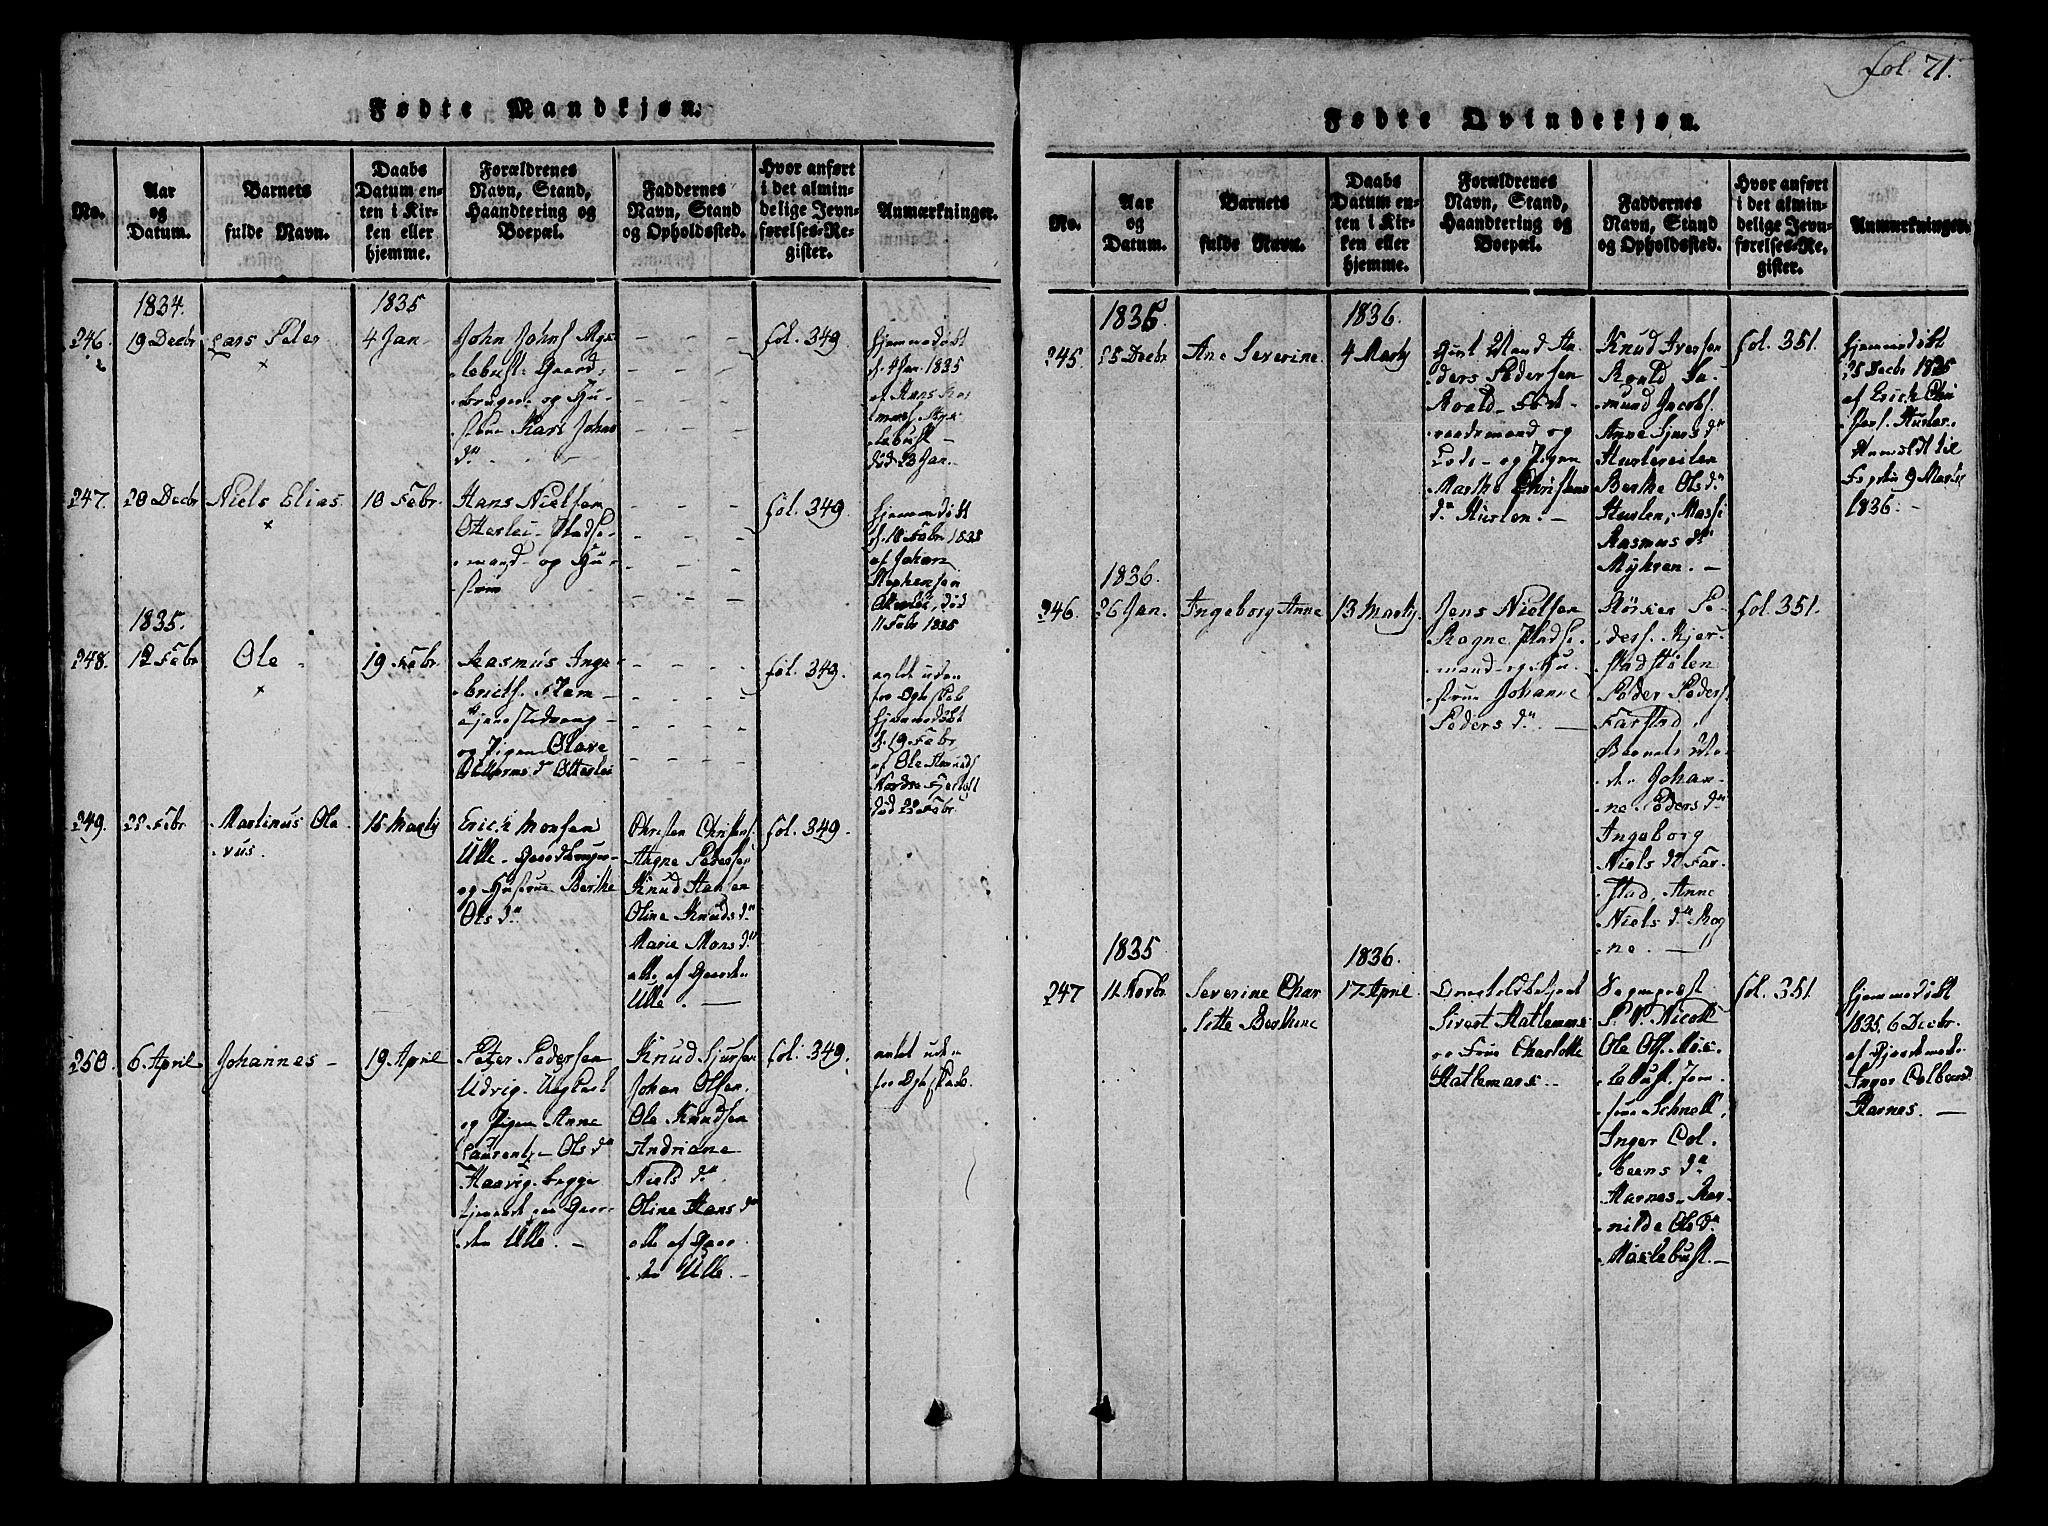 fol. 71.
Fødte Mandkjøn.
No.
Aar
og
Datum.
Barnets
fulde Navn.
Daabs
Datum en-
ten i Kir-
ken eller
hjemme.
Forældrenes
Navn, Stand,
Haandtering og
Boepæl.
Faddernes
Navn, Stand
og Opholdssted.
Hvor anført
i det almin-
delige Jevn-
førelses-Re-
gister.
Anmærkninger.
1834.
1835
246.
19 Decbr
Lars Peter
4 Jan
John Johns
-lebust Gaard
bruger og Hu-
strue Kari Johns
d"
fol. 349
hjemmedøbt
d. 4 Jan. 1835
af Hans
-lebust -
død 23 Jan.
247.
20 Decbr
Niels Elias
18 Febr.
Hans Nielsen
Otterlei Pladse-
mand og Hu-
strue
fol. 349.
hjemmedøbt
d. 18 Febr. 1835
af Johan
Stephensen
Otterlei, død
1835.
248.
12 Febr
Ole
19 Febr.
Rasmus Inge-
brigts.
og Pigen Olave
d" Otterlei
fol. 349.
ægte uden
for Egteskab
hjemmedøbt
d. 19 Febr
af Ole
Nordre Fjørtoft
død 22 Febr
249.
22 Febr
Martinus Ola-
-vus.
15 Martij
Erich Monsen
Ulle - Gaardbruger
og Hustrue Berthe
Ols d"
Christen Christens.
Aagne Pedersen
Knud Hansen
Oline Knuds d"
Marie Mons d"
alle af Gaarden
Ulle. -
fol. 349.
250.
6 April
Johannes -
19 April
Peter Pedersen
Udvig. Ungkarl
og Pigen Anne
Laurentze Ols d"
Haavig. begge
tjenende paa Gaar-
-den Ulle. -
Knud Sjursen
Johan Olsen.
Ole Knudsen
Andriane
Niels d".
Oline Hans d"
alle af Gaar-
-den Ulle. -
fol. 349.
avlet uden
for Egteskab.
Fødte Qvindekjøn.
No.
Aar
og
Datum.
Barnets
fulde Navn.
Daabs
Datum en-
ten i Kir-
ken eller
hjemme.
Forældrenes
Navn, Stand,
Haandtering og
Boepæl.
Faddernes
Navn, Stand
og Opholdssted.
Hvor anført
i det almin-
delige Jevn-
førelses-Re-
gister.
Anmærkninger.
1835.
1836.
245.
25 Decbr
Ane Severine
4 Martij
Gift Mand An-
-ders Pedersen
Roald
og
Lods - og Pigen
Marthe Christens
d" Hurlen. -
Knud Iversen
Roald
-mund Jacobs.
Anne Sjurs d"
Berthe Ols d"
Hurlen, Masse
Rasmus d"
Myhren. -
fol. 351.
hjemmedøbt
25 Decbr 1835
af Erich Chri-
Anmeldt til
9 Martij
1836. -
1836.
246.
26 Jan.
Ingeborg Anne
13 Martij.
Jens Nielsen
Rogne Pladse-
mand og Hu-
-strue Johanne
Peders d". -
Størker Pe-
ders. Kjer-
stadstølen
Peder Peders.
Farstad,
Barnets Mo-
-der Johan-
-ne Peders d"
Ingeborg
Niels d" Far-
stad, Anne
Niels d". Rog-
-ne. -
fol. 351.
1835
1836.
247
11 Novbr
Severine Char-
-lotte Berthine
17 April
Sivert Hatlemark
og Frue Charlotte
Hatlemark. -
Sogneprest
P. V. Nicoll
Ole Ols. Møk-
-lebust. Jom-
-frue Schnell,
Inger Col-
-beens d"
Harnes. Rag-
-nilde Ols d"
Møklebust. -
fol. 351.
hjemmedøbt
1835. 6 Decbr.
af Gjordemoder
Inger Colbeensd.
Harnes. -